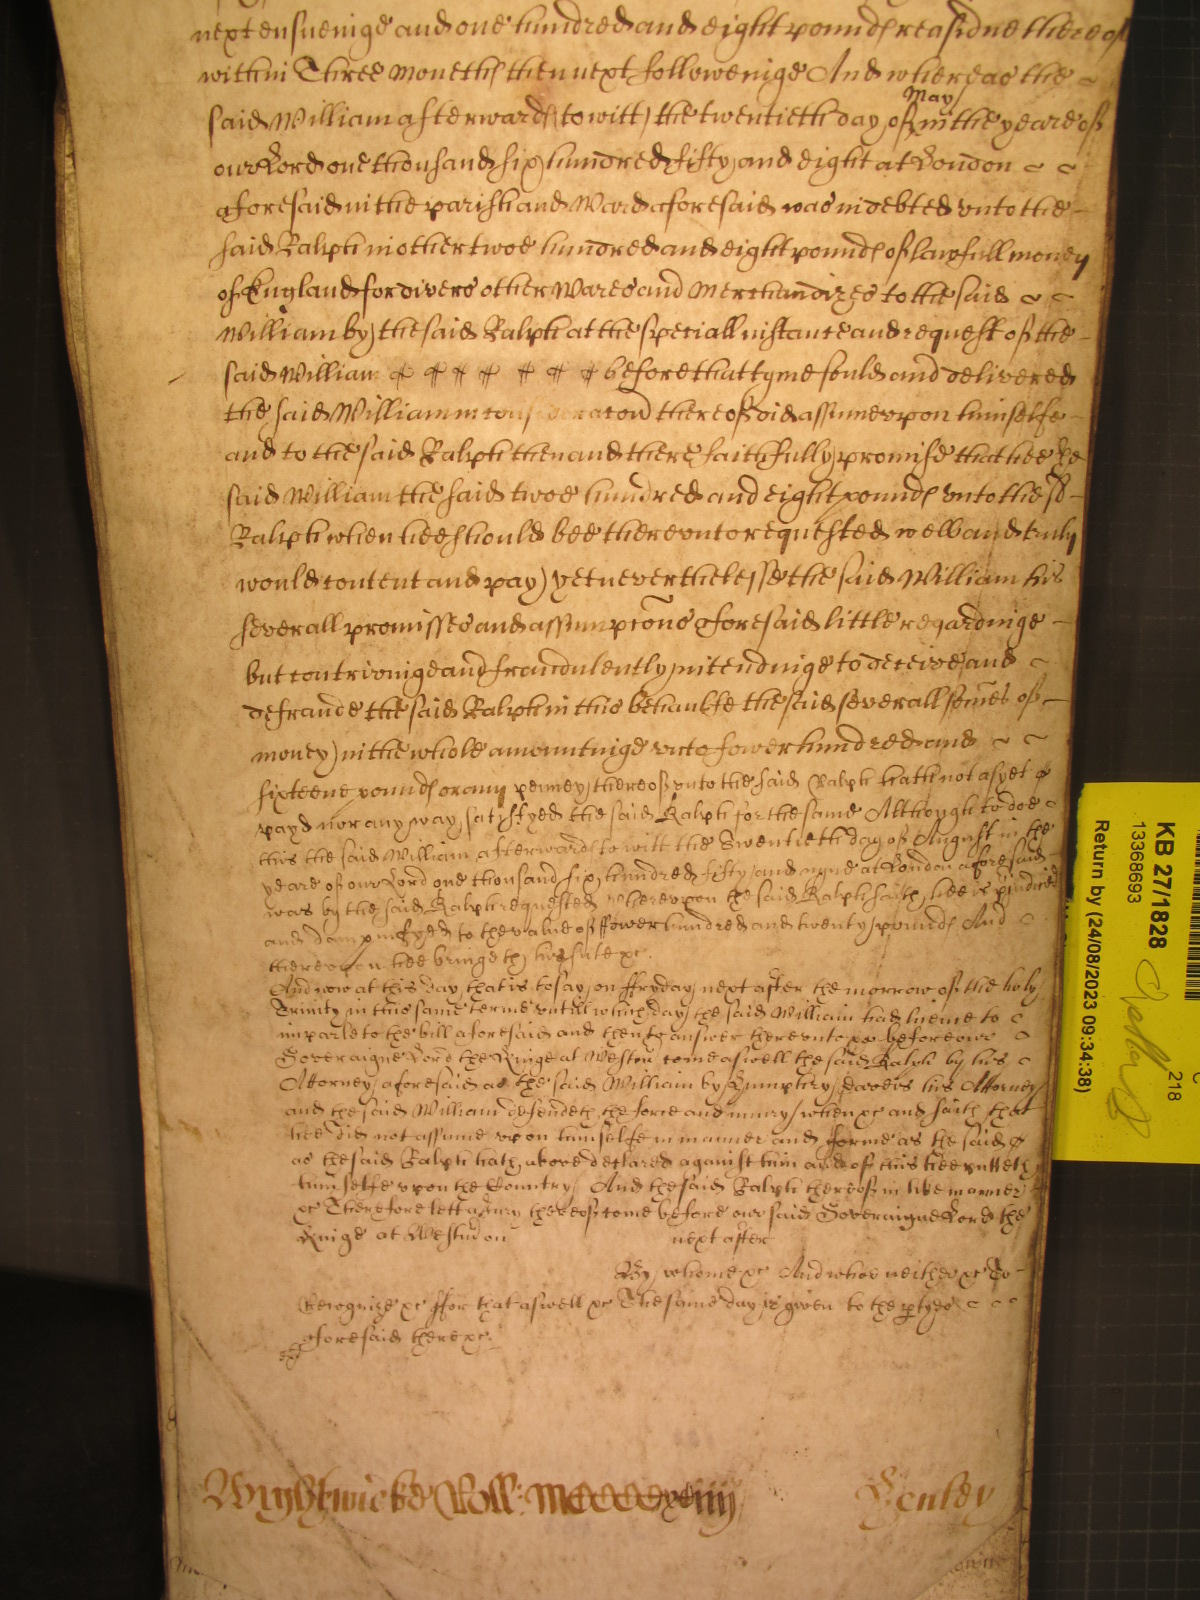 next ensueinge and one hundred and eight pounds residue thereof
within Three moneths then next followeinge And whereas the
said William afterwards to witt the twentieth day of May in the yeare of
our Lord one thousand six hundred fifty and eight at London
aforesaid in the parish and Ward aforesaid was indebted unto the
said Ralph in other twoe hundred and eight pounds of lawfull money
of England for divers other Wares and Merchandizes to the said
William by the said Ralph at the speciall instance and request of the
said William before that tyme sould and delivered
the said William in consideracon thereof did assume upon himselfe
and to the said Ralph then and there faithfully promise that hee the
said William the said twoe hundred and eight pounds unto the sd
Ralph when hee should bee thereunto requested well and truly
would content and pay yet neverthelesse the said William his
severall promisses and assumpcons aforesaid little regardinge
but contriveinge and fraudulently intendinge to deceive and
defraude the said Ralph in this behaulfe the said severall somes of
money in the whole amountinge unto fower hundred and
sixteene pounds or any penney thereof unto the said Ralph hath not as yet
payd nor any way satisfyed the said Ralph for the same Although to doe
this the said William afterwards to witt the Twentieth day of August in the
yeare of our Lord one thousand six hundred fifty and nyne at London aforesaid
was by the said Ralph requested Whereupon the said Ralph saith hee is prejudiced
and dampnifyed to the value of ffower hundred and twenty pounds And
thereupon hee bringeth his sute &c.
And now at this day that is to say on ffryday next after the morrow of the holy
Trinity in this same terme untill which day the said William had licence to
imparle to the bill aforesaid and then to answer thereunto &c before our
Soveraigne Lord the Kinge at Westm come aswell the said Ralph by his
Attorney aforesaid as the said William by Humphry Daveis his Attorney
and the said William defendeth the force and injury when &c and saith that
hee did not assume upon himselfe in manner and forme as the said
as the said Ralph hath above declared against him and of this hee putteth
himselfe upon the Country And the said Ralph thereof in like manner
&c Therefore lett a Jury thereof come before our said Soveraigne Lord the
Kinge at Westm on next after
By whome &c And whoe neither &c To
Recognize &c ffor that aswell &c The same day is given to the partyes
aforesaid there &c
Wightwicke Roll: MCCCCxciiij
Henley
KB 27/1828
13368693
Return by (24/08/2023 09:34:38)
218